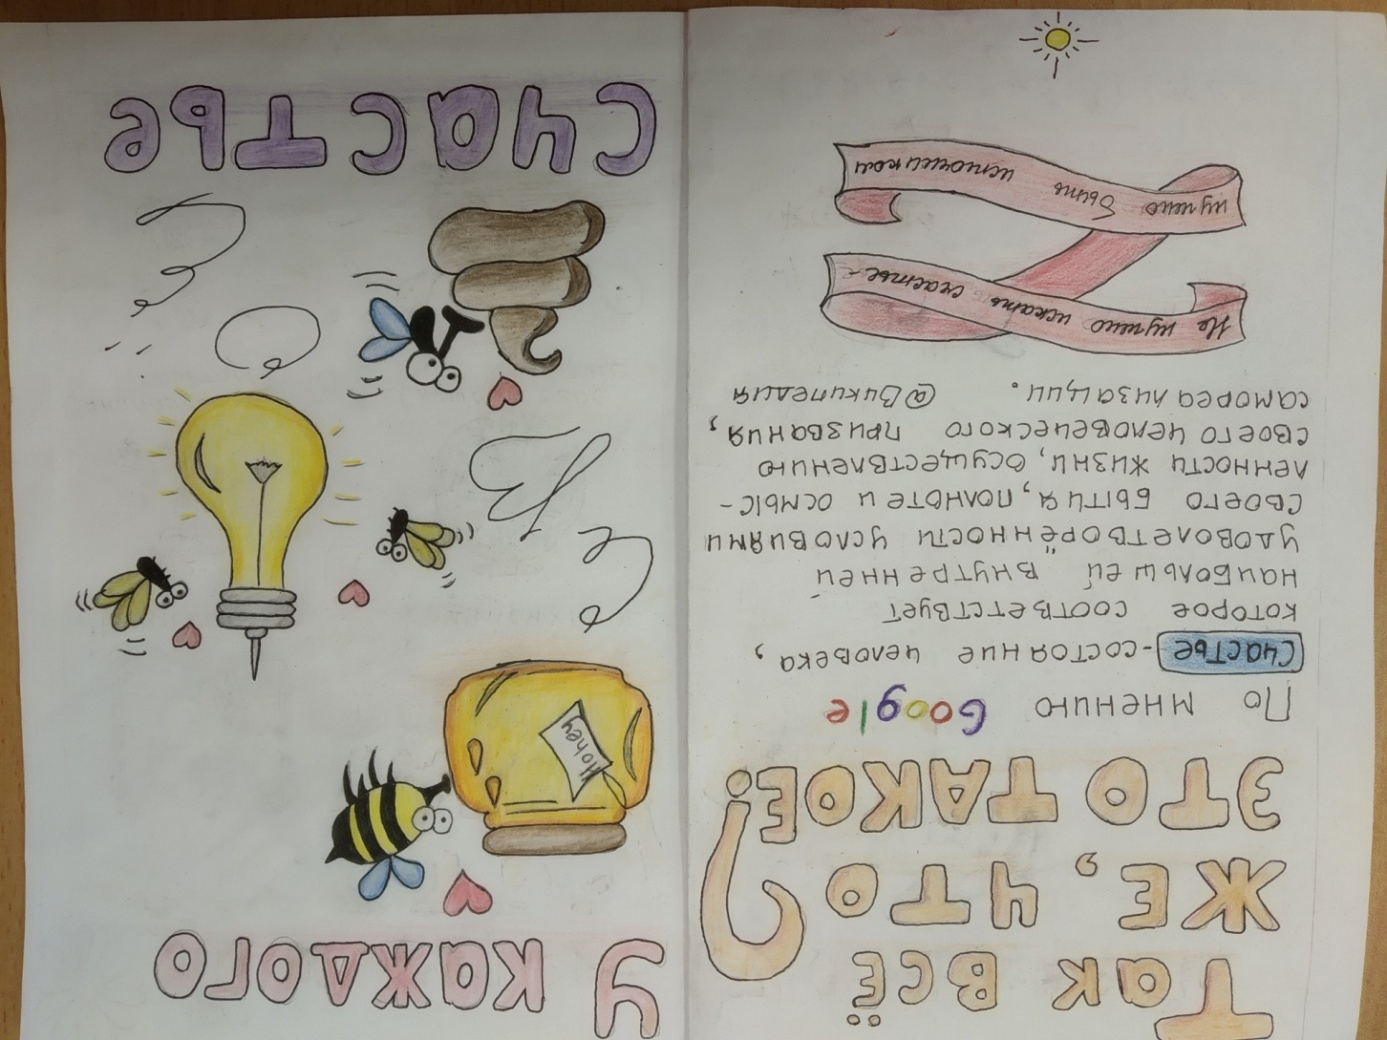 Так всё
же, что
это такое?
По мнению Google
Счастье - состояние человека,
которое соответствует
наибольшей внутренней
удовлетворённости условиями
своего бытия, полноте и осмыс-
ленности жизни, осуществлению
своего человеческого призвания,
самореализации. @Википедия
Не нужно искать счастье -
нужно быть источником
У каждого
Honey
счастье